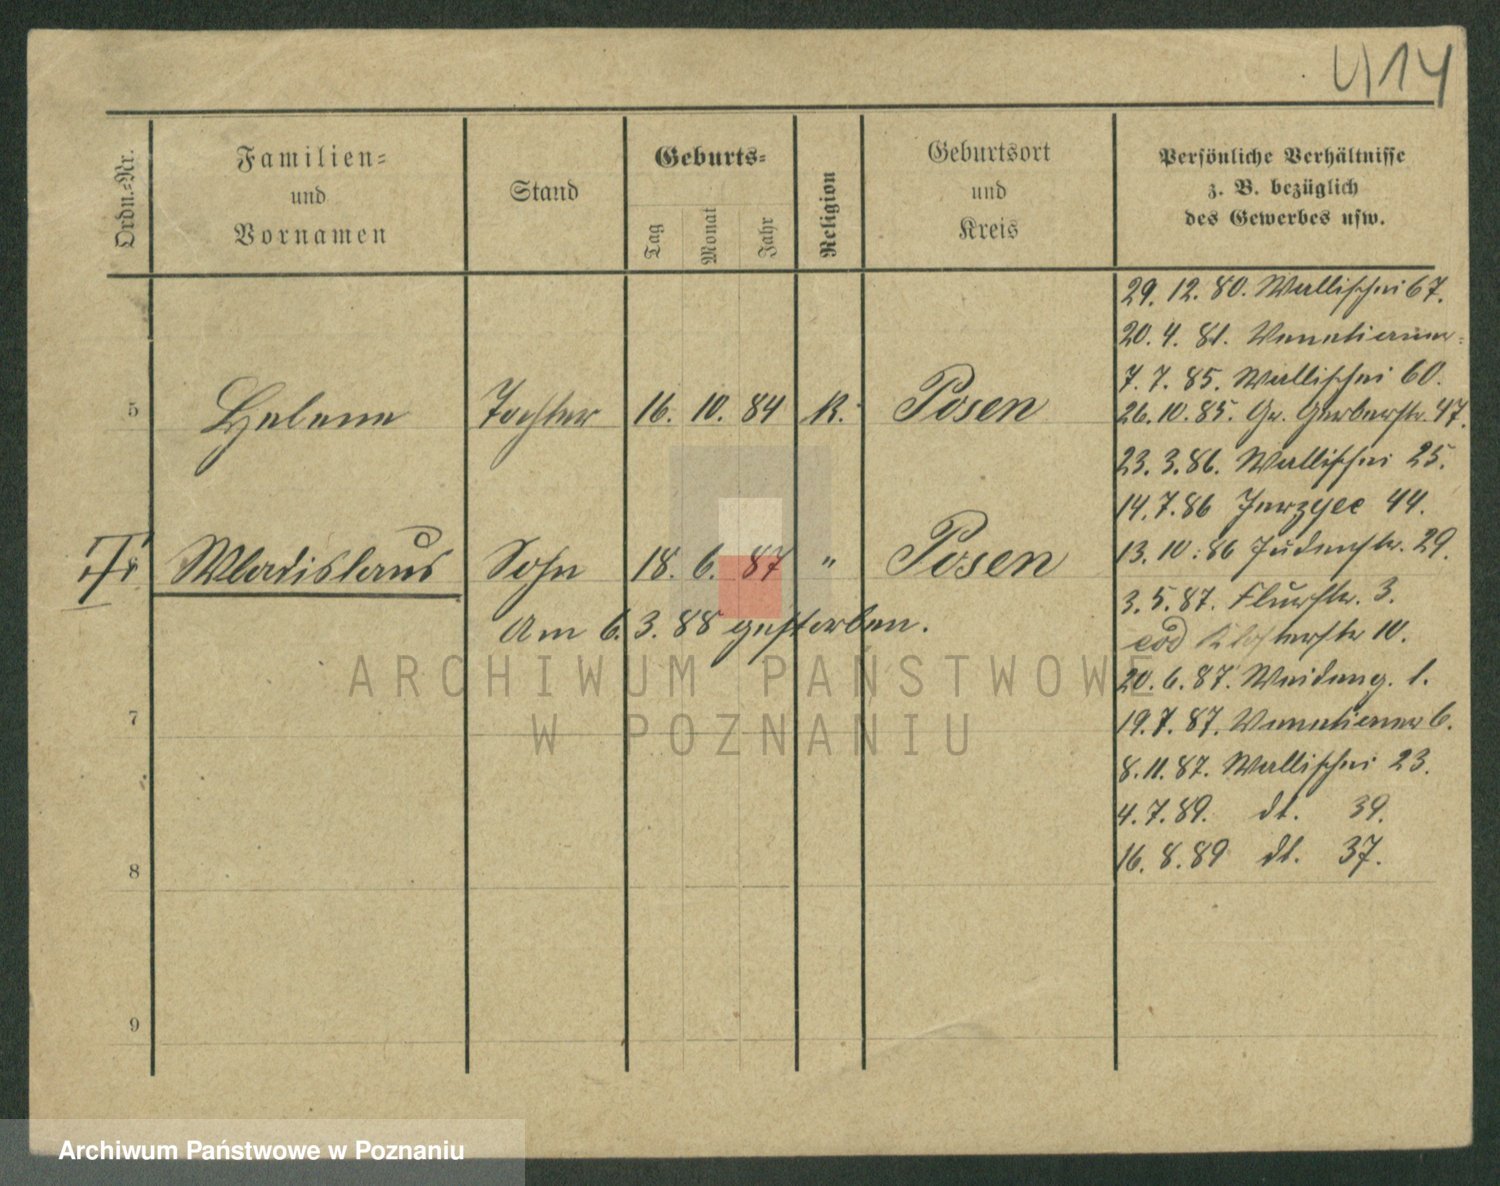 414
Ordn.=Nr.
Familien=
und
Vornamen
Stand
Geburts=
Tag
Monat
Jahr
Religion
Geburtsort
und
Kreis
Persönliche Verhältnisse
z. B. bezüglich
des Gewerbes usw.
29. 12. 80. Wallischei 67.
20. 4. 81. Venetianer-
7. 7. 85. Wallischei 60.
5 Helene Tochter 16. 10. 84 K. Posen
26. 10. 85. Gr. Gerberstr. 47.
23. 3. 86. Wallischei 25.
14. 7. 86 Jerzyce 44.
13. 10. 86 Judenstr. 29.
Wladislaus Sohn 18. 6. 87 " Posen
3. 5. 87. Flurstr. 3.
Am 6. 3. 88 gestorben.
eod Klosterstr 10.
20. 6. 87. Weideng. 1.
7
19. 7. 87. Venetianer 6.
8. 11. 87. Wallischei 23.
4. 7. 89. dt. 39.
16. 8. 89 dt. 37.
8
9
ARCHIWUM PAŃSTWOWE
W POZNANIU
Archiwum Państwowe w Poznaniu